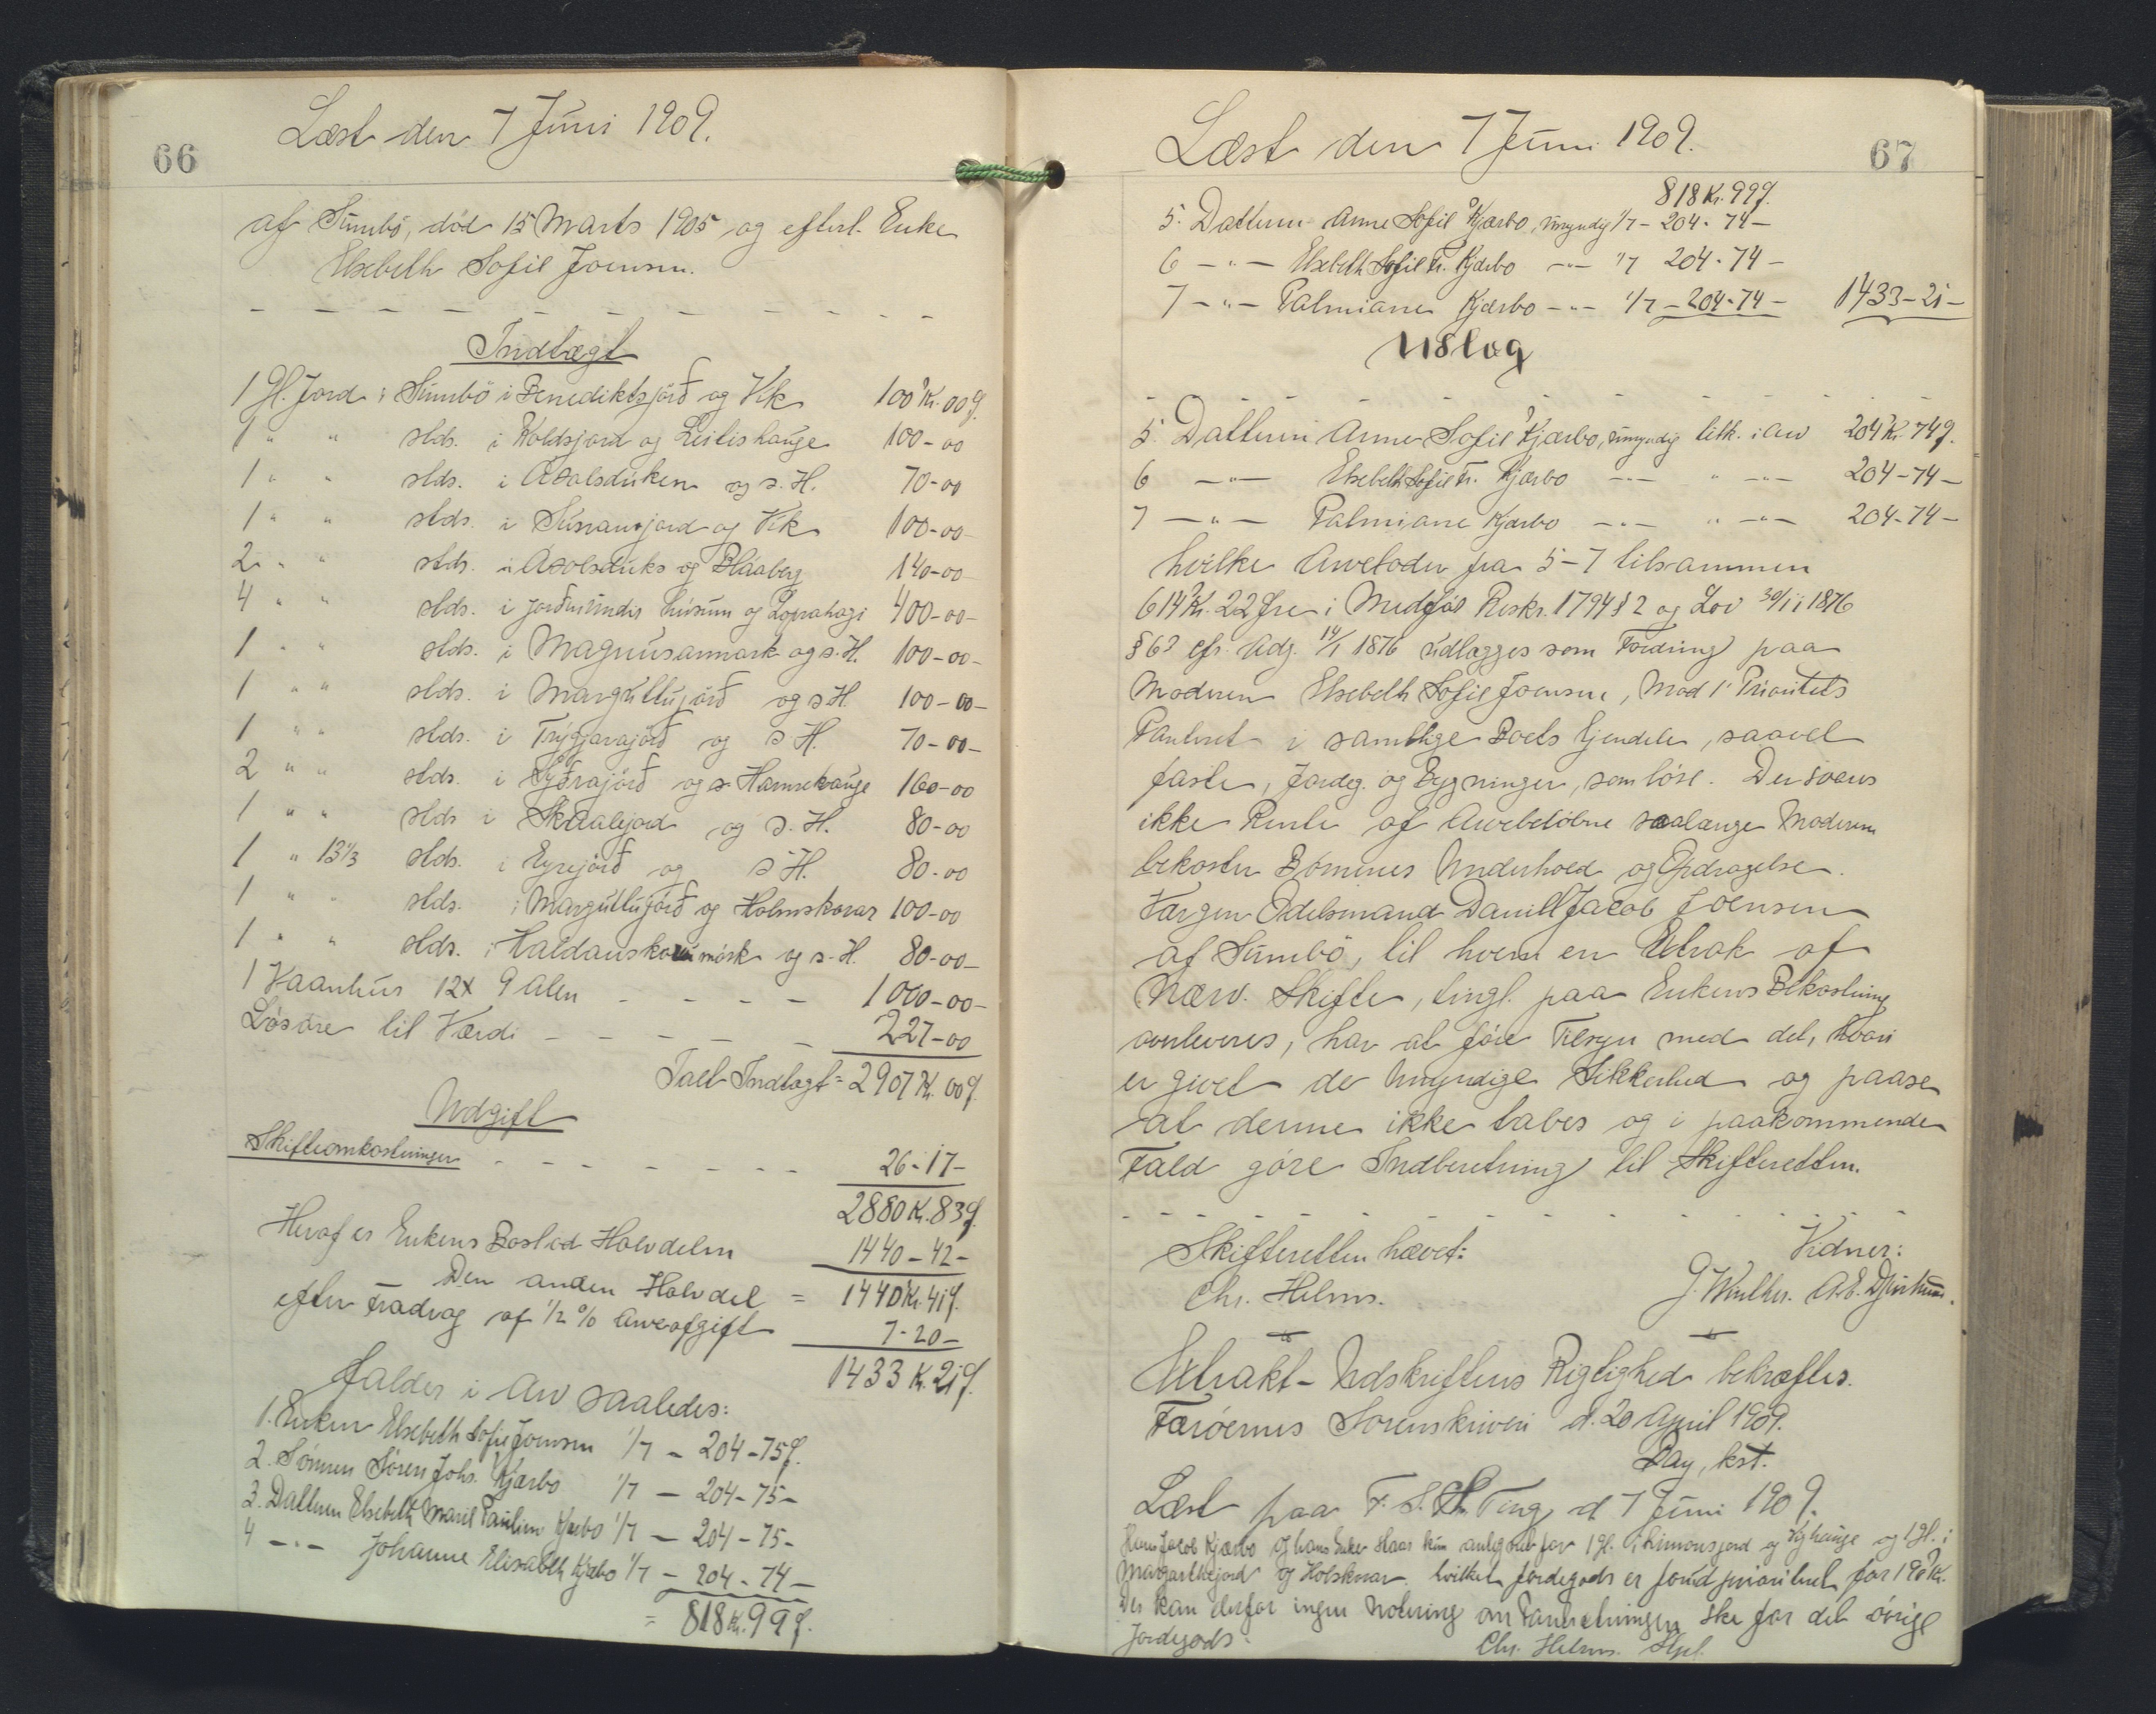 66
Læst den 7 Juni 1909.
af Sumbö, død 15 Marts 1905 og efterl. Enke
Elsebeth Sofie Joensen.
Indtægt
1 Gl. Jord i Sumbö i Benediktsjørð og Vik 100 Kr. 00 Ø.
1 " " stds. i Koldsjord og Leitishauge 100-00
1 " " stds. i Åsolsduken og s. H. 70-00
1 " " stds. i Sunnansjord og Vik 100-00
2 " " stds. i Åsolsduks og Blåaberg 140-00
4 " " stds. i jorðin undir húsum og Loprahagi 400-00-
1 " " stds. i Magnusarmørk og s. H. 100-00-
1 " " stds. i Margu̇ttujørð og s H. 100-00-
1 " " stds. i Trygjarajørð og s. H. 70-00-
2 " " stds. i Syðrajørð og s Hamrehauge 160-00
1 " " stds i Skaalejord og s. H. 80-00
1 " 13⅓ stds. i Eyrejörð og s H. 80-00
1 " " stds. i Marguttujørð og Holmskorar 100-00
1 " " stds. i Haldanskonumørk og s. H. 80-00-
1 Vaanhus 12 x 9 Alen - - - - 1000-00-
Løsøre til Værdi - - - - - 227-00
Talt Indtægt = 2907 Kr. 00 Ø.
Udgift
Skifteomkostninger - - - - - - - 26-17-
2880 Kr. 83 Ø.
Heraf er Enkens Boslod Halvdelen 1440-42-
Den anden Halvdel = 1440 Kr. 41 Ø.
efter Fradrag af ½ % Arveafgift 7-20-
1433 Kr. 21 Ø.
falder i Arv saaledes:
1. Enken Elsebeth Sofie Joensen 1/7 - 204-75 Ø.
2. Sønnen Søren Johs. Kjærbo 1/7 - 204-75-
3. Datteren Elsebeth Marie Pauline Kjærbo 1/7 - 204-75-
4 - " - Johanne Elisabeth Kjærbo 1/7 - 204-74-
= 818 Kr. 99 Ø.
67
Læst den 7 Juni 1909.
818 Kr. 99 Ø.
5. Datteren Anne Sofie Kjærbo, umyndig 1/7 - 204-74-
6 - " - Elsebeth Sofie Fr. Kjærbo - " - 1/7 204-74-
7 - " - Palmiane Kjærbo - " - 1/7 - 204-74- 1433-21-
Udlog
5. Datteren Anne Sofie Kjærbo, umyndig tilk. i Arv 204 Kr. 74 Ø.
6 - " - Elsebeth Sofie Fr. Kjærbo - " - " - " - 204-74-
7 - " - Palmiane Kjærbo - " - " - " - 204-74-
hvilke Arvelodder fra 5-7 tilsammen
614 Kr. 22 Øre i Medfør Reskr. 1794 § 2 og Lov 30/11 1876
§ 63 cfr. Adg. 14/1 1876 udlægges som Fordring paa
Moderen Elsebeth Sofie Joensen, Mod 1' Prioritets
Panteret i samtlige Boets Ejendele, saavel
faste, Jordeg. og Bygninger, som løse. Der svares
ikke Rente af Arvebeløbne saalænge Moderen
bekoster Børnenes Underhold og Opdragelse.
Værgen Odelsmand Daniel Jacob Joensen
af Sumbö, til hvem en Extrak af
Nærv. Skifte, tingl. paa Enkens Bekostning
overleveres, har at føre Tilsyn med det, hvori
er givet de Umyndige Sikkerhed og paase
at denne ikke tabes og i paakommende
Fald göre Indberetning til Skifteretten.
Skifteretten hævet: Vidner:
Chr. Helms. J. Winther. A. E. Djurhuus.
Extrakt-Udskriftens Rigtighed bekræftes.
Færöernes Sorenskriveri d. 20 April 1909.
Bay, kst.
Læst paa F. S. Ting d 7 Juni 1909.
Hans Jacob Kjærbo og hans Enke Haas kun adkomst for 1 gl. i Simonsjord og Vighauge og 1 gl. i
Margarethejord og Holsknar. hvilket Jordegods er forud prioriteret for 190 Kr.
Der kan derfor ingen Notering om Panteretningen ske for det øvrige
Jordegods.
Chr. Helms.